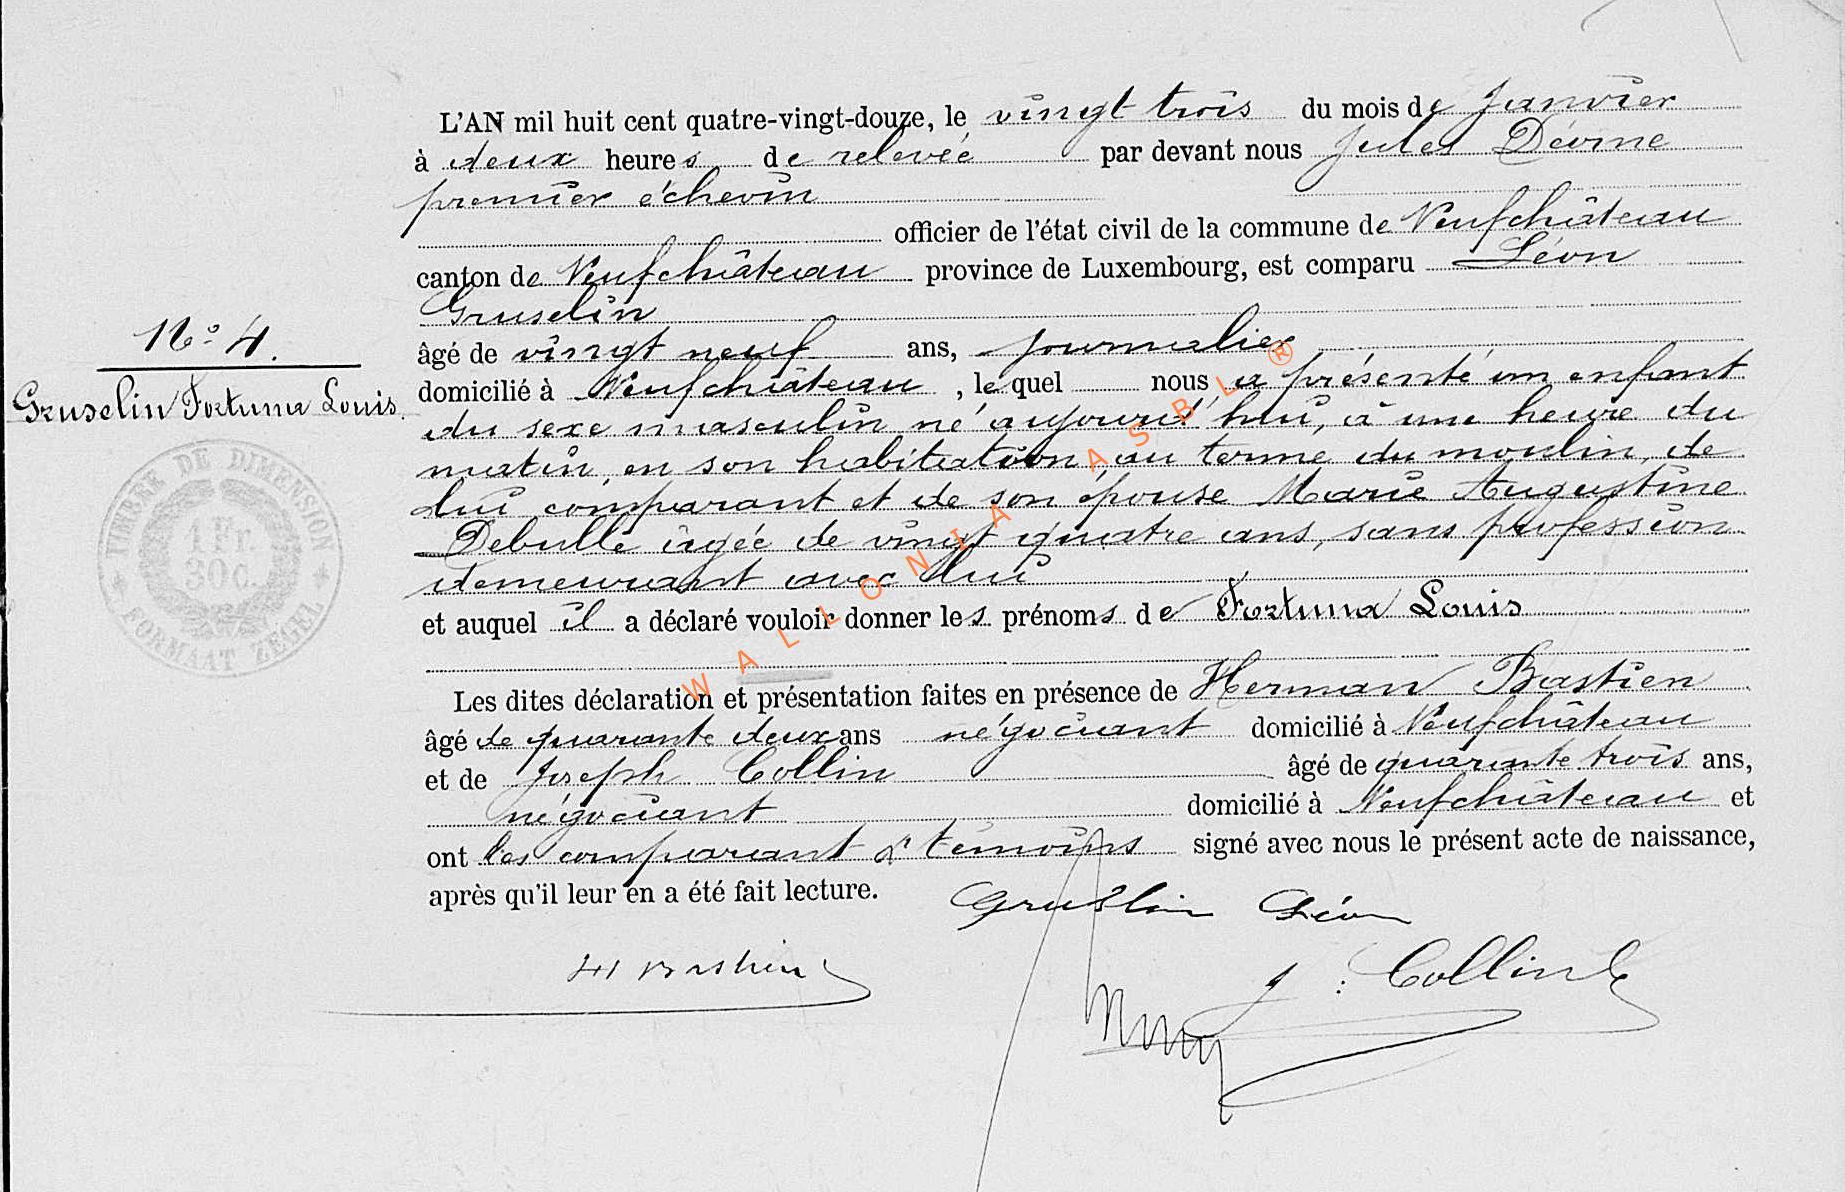 L'AN mil huit cent quatre-vingt-douze, le vingt trois du mois de Janvier
à deux heures de relevée par devant nous Jules
premier échevin
officier de l'état civil de la commune de Neufchâteau
canton de Neufchâteau province de Luxembourg, est comparu Léon
Gruselin
âgé de vingt neuf ans, journalier
domicilié à Neufchâteau, lequel nous a présenté un enfant
du sexe masculin né aujourd'hui, à une heure du
matin, en son habitation, au terme du moulin, de
lui comparant et de son épouse Marie Augustine
Debulle âgée de vingt quatre ans, sans profession
demeurant avec lui
et auquel il a déclaré vouloir donner les prénoms de Fortuna Louis
Les dites déclaration et présentation faites en présence de Herman Bastien
âgé de quarante deux ans négociant domicilié à Neufchâteau
et de Joseph Collin âgé de quarante trois ans,
négociant domicilié à Neufchâteau et
ont les comparant & témoins signé avec nous le présent acte de naissance,
après qu'il leur en a été fait lecture.
Gruslin Léon
H Bastien
J. Collin
No. 4.
Gruselin Fortuna Louis.
TIMBRE DE DIMENSION
1 Fr.
30 c.
FORMAAT ZEGEL
WALLONIA ASBL ®